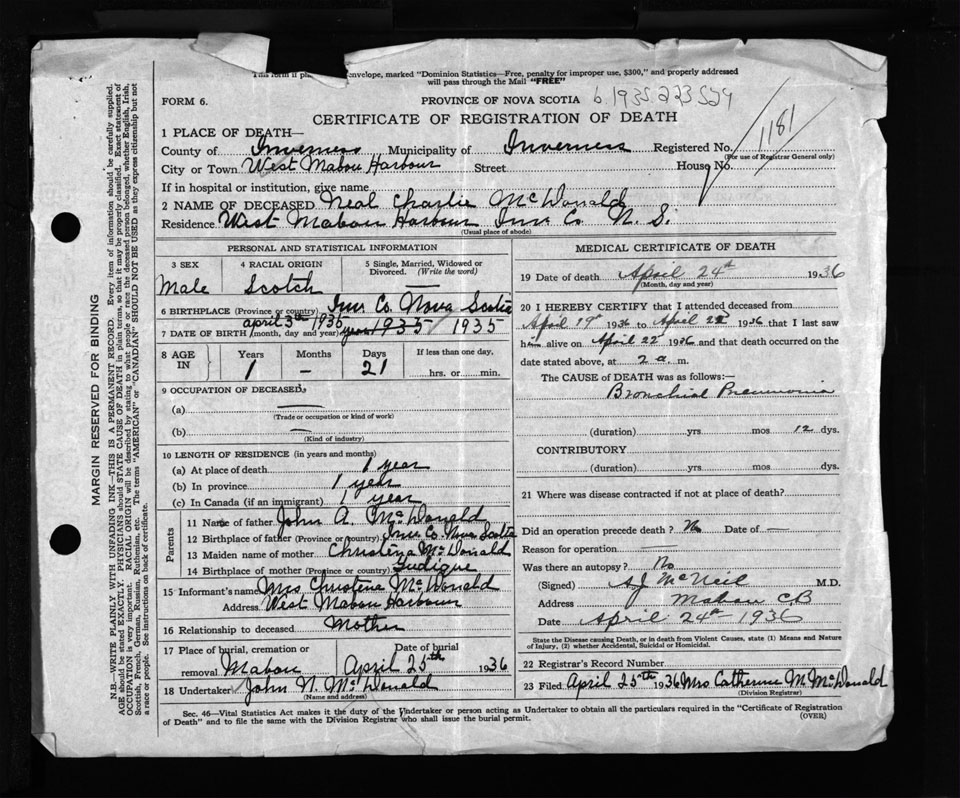 envelope, marked "Dominion Statistics—Free, penalty for improper use, $300," and properly addressed
will pass through the Mail "FREE"
FORM 6.
PROVINCE OF NOVA SCOTIA
CERTIFICATE OF REGISTRATION OF DEATH
1181
1 PLACE OF DEATH—
County of Inverness Municipality of Inverness Registered No.
(For use of Registrar General only)
City or Town West Mabou Harbour Street House No.
If in hospital or institution, give name
2 NAME OF DECEASED Neal Charlie McDonald
Residence West Mabou Harbour Inv Co N. S.
(Usual place of abode)
PERSONAL AND STATISTICAL INFORMATION
3 SEX 4 RACIAL ORIGIN 5 Single, Married, Widowed or
Divorced. (Write the word)
Male Scotch —
6 BIRTHPLACE (Province or country) Inv Co. Nova Scotia
april 3th 1935
7 DATE OF BIRTH (month, day and year) 1935 / 1935
8 AGE IN Years Months Days If less than one day,
1 – 21 hrs. or min.
9 OCCUPATION OF DECEASED:
(a) —
(Trade or occupation or kind of work)
(b) —
(Kind of industry)
10 LENGTH OF RESIDENCE (in years and months)
(a) At place of death 1 year
(b) In province 1 year
(c) In Canada (if an immigrant) 1 year
Parents
11 Name of father John A. McDonald
12 Birthplace of father (Province or country) Inv Co. Nova Scotia
13 Maiden name of mother Christena McDonald
14 Birthplace of mother (Province or country) Judique
15 Informant's name Mrs Christena McDonald
Address West Mabou Harbour
16 Relationship to deceased Mother
17 Place of burial, cremation or Date of burial
removal Mabou April 25th 1936
18 Undertaker John N. McDonald
(Name and address)
MEDICAL CERTIFICATE OF DEATH
19 Date of death April 24th 1936
(Month, day and year)
20 I HEREBY CERTIFY that I attended deceased from
April 19th 1936 to April 22 1936 that I last saw
him alive on April 22 1936 and that death occurred on the
date stated above, at 2 a. m.
The CAUSE OF DEATH was as follows:—
Bronchial Pneumonia
(duration) yrs mos 12 dys.
CONTRIBUTORY
(duration) yrs mos dys.
21 Where was disease contracted if not at place of death?
Did an operation precede death? No Date of —
Reason for operation —
Was there an autopsy? No
(Signed) A J McNeil M.D.
Address Mabou C.B
Date April 24th 1936
State the Disease causing Death, or in death from Violent Causes, state (1) Means and Nature
of Injury, (2) whether Accidental, Suicidal or Homicidal.
22 Registrar's Record Number
23 Filed April 25th 1936 Mrs Catherine M. McDonald
(Division Registrar)
Sec. 46—Vital Statistics Act makes it the duty of the Undertaker or person acting as Undertaker to obtain all the particulars required in the "Certificate of Registration
of Death" and to file the same with the Division Registrar who shall issue the burial permit.
(OVER)
MARGIN RESERVED FOR BINDING
N.B.—WRITE PLAINLY WITH UNFADING INK—THIS IS A PERMANENT RECORD. Every item of information should be carefully supplied.
AGE should be stated EXACTLY. PHYSICIANS should STATE CAUSE OF DEATH in plain terms, so that it may be properly classified. Exact statement of
OCCUPATION is very important. RACIAL ORIGIN will be described by stating to what people or race the deceased person belonged, whether English, Irish,
Scottish, French, German, Russian, Ruthenian, etc. The terms "AMERICAN" or "CANADIAN" SHOULD NOT BE USED as they express citizenship but not
a race or people. See instructions on back of certificate.